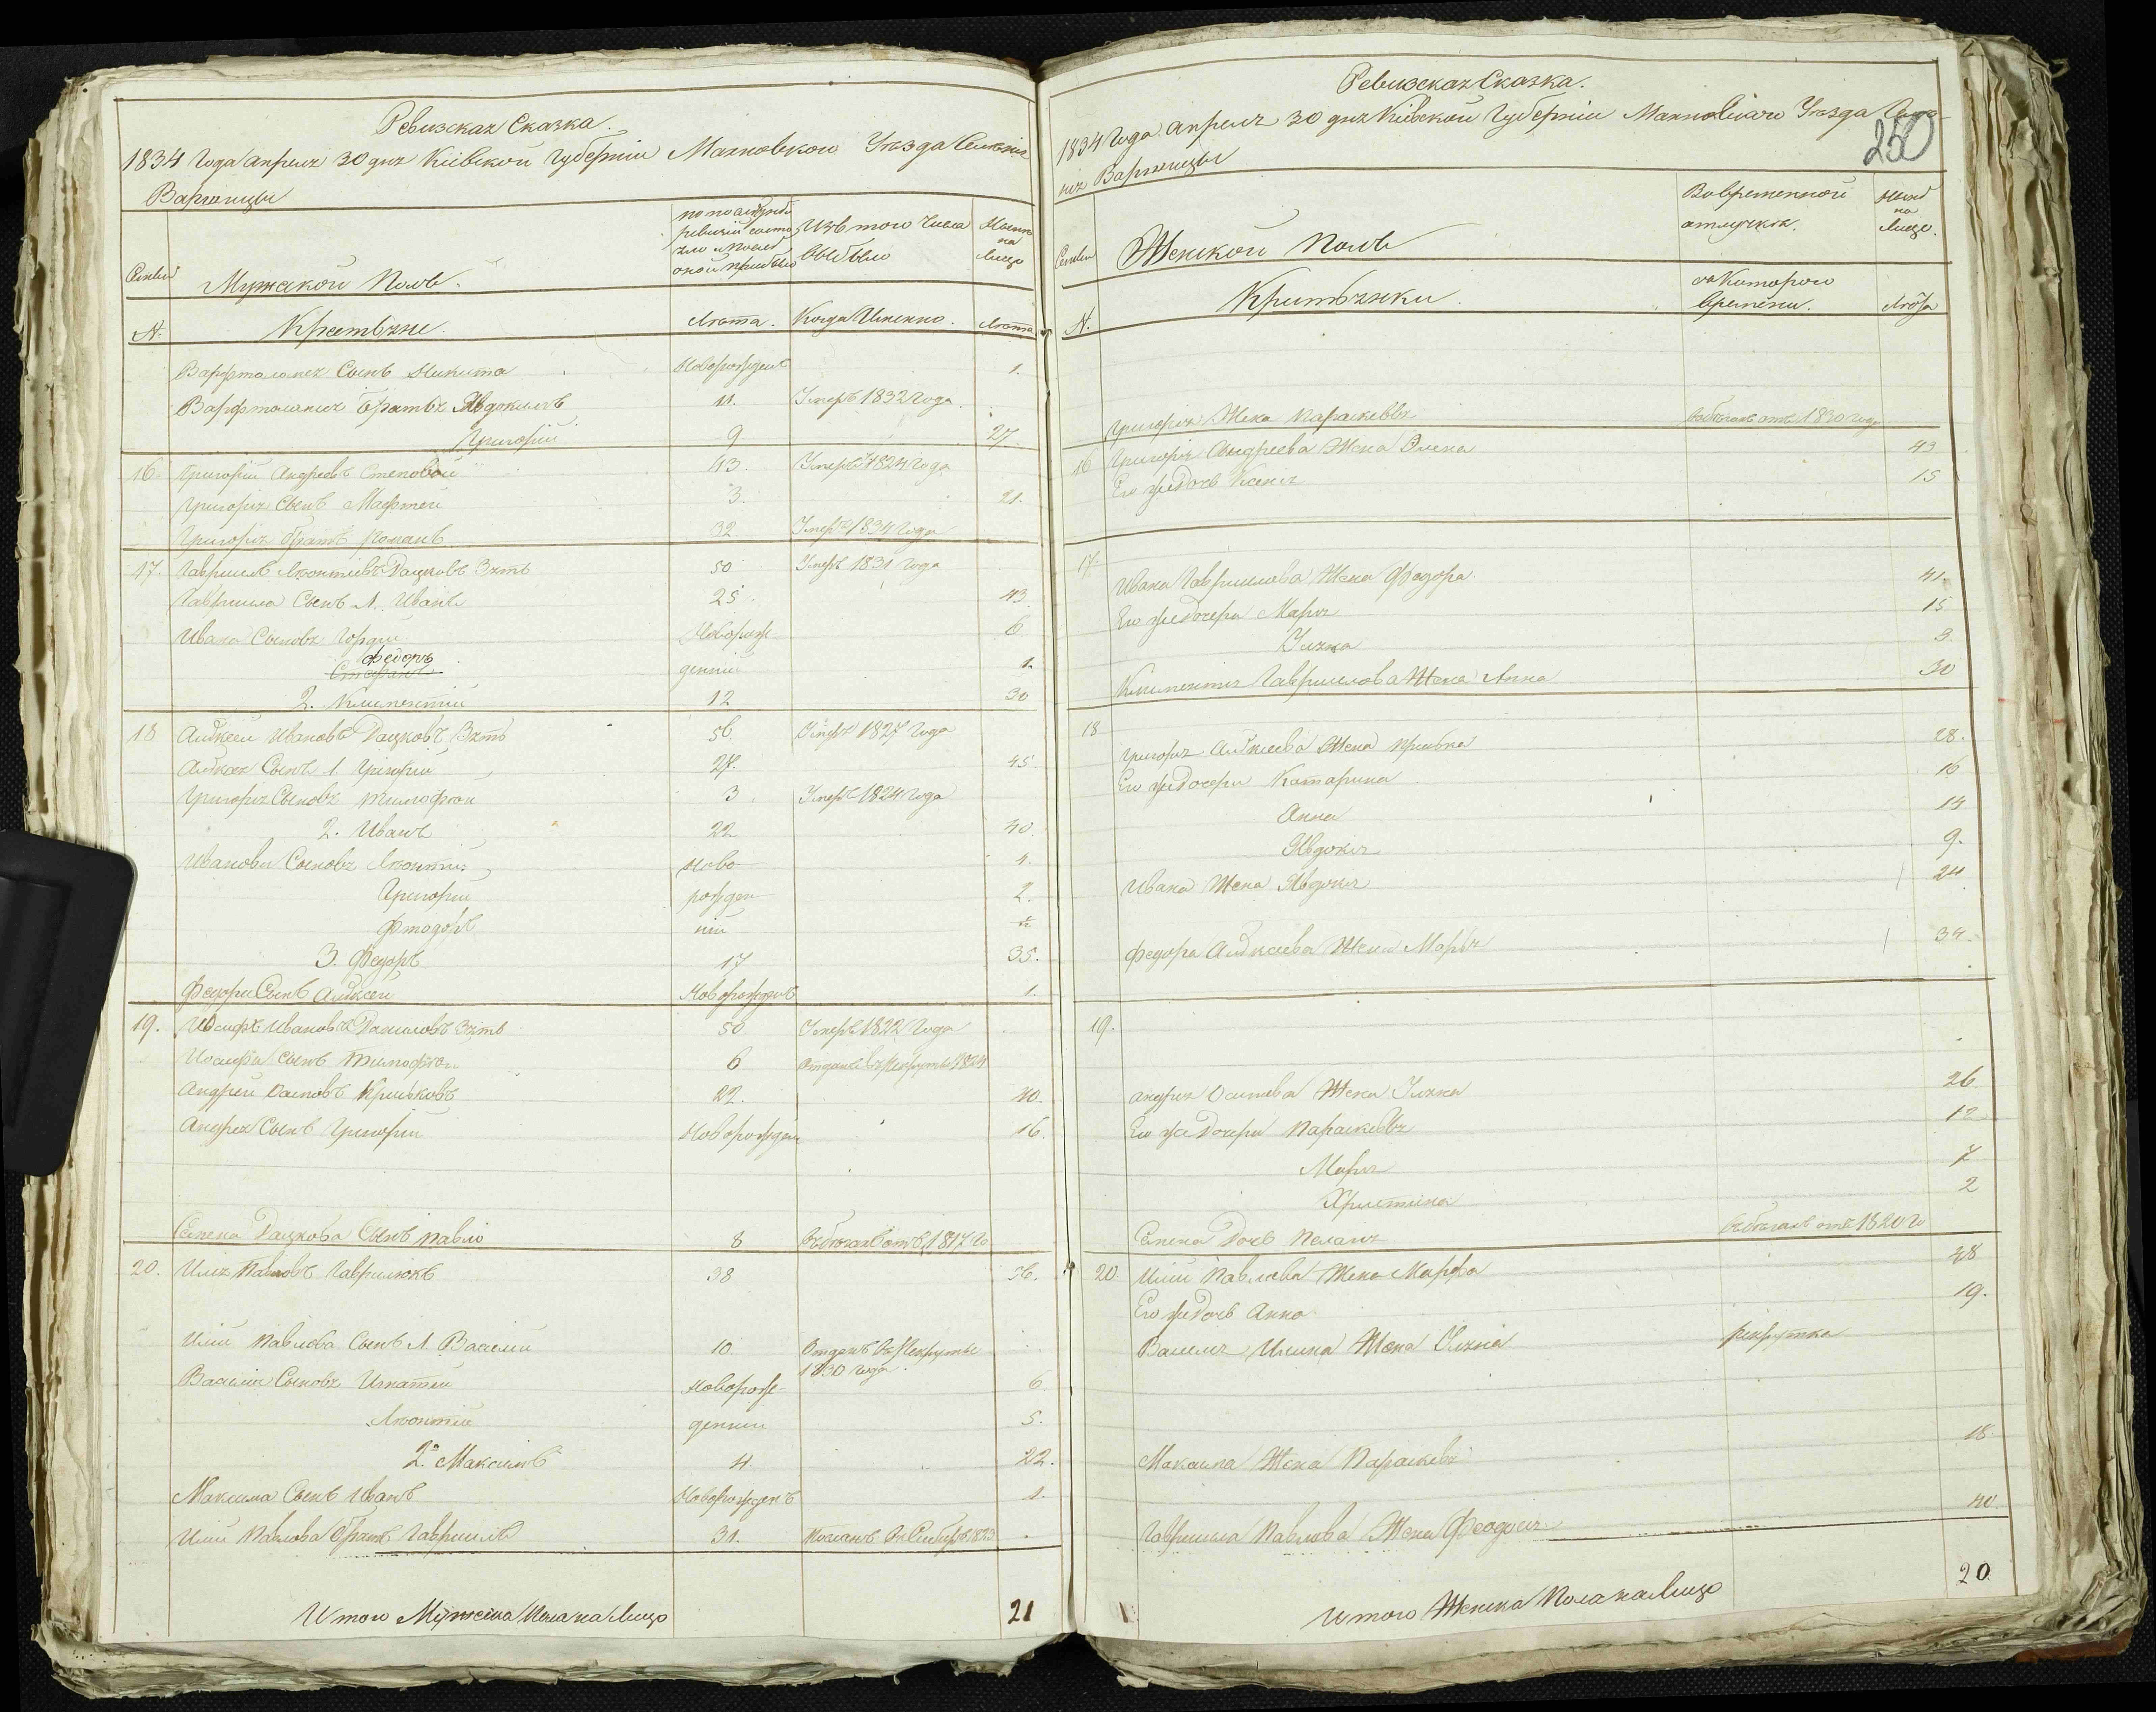 Ревизская Сказка.
1834 Года Апреля 30 дня Кіевской Губерніи Махновского Уезда Селенія
Селенія
Семьи
Мужеской Полъ.
Изъ того Числа
выбыло
на
лицо
№
Крестьяне.
Лета.
Когда Именно.
Лета
Сынъ Никита
Новорожденъ
1.
Братья Явдокимъ
11.
Умеръ 1832 Года
Григорій
9
27
16.
Григорій Андреевъ Степовой
43.
Умеръ 1824 Года
Григорія Сынъ Мафтей
3.
21.
Григорія братъ Романъ
32
Умеръ 1834 Года
17.
Гавриилъ Леонтіевъ Дацковъ Зять
50
Умеръ 1831 Года
Гавриила Сынъ 1. Иванъ
25
43.
Ивана Сыновя Гордій
Новорож
6.
Федоръ
Стефанъ
денній
1.
2. Климентій
12
30
18
Алексей Ивановъ Дацковъ Зять
56
Умеръ 1827 Года
Алексея Сынъ 1. Григорій
27.
45
Григорія Сыновя Тимофтей
3
Умеръ 1824 Года
2. Иванъ
22
40.
Иванова Сыновя Леонтій
Ново
4.
Григорій
рожден
2.
Фтодоръ
ній
3. Федоръ
17
35.
Федора Сынъ Алексей
Новорожденъ
1.
19.
Иосифъ Ивановъ Даниловъ Зять
50
Умеръ 1822 Года
Иосифа Сынъ Тимофтей
6
Отданъ въ Рекруты 1824
Андрей Осиповъ Крывковъ
22.
40.
Андрея Сынъ Григорій
Новорожден
16.
Семена Дацкова Сынъ Павло
8
въ бегахъ отъ 1817 Го
20.
Илія Павловъ Гаврилюкъ
38
56.
Иліи Павлова Сынъ 1. Василій
10.
Отданъ въ Рекруты
1830 года
Василія Сыновя Игнатій
Новорож
6
Леонтій
денніи
5.
2. Максимъ
4
22.
Максима Сынъ Иванъ
Новорожденъ
1.
Иліи Павлова Братъ Гавриилъ
31.
Посланъ въ Сибирь 1823
Итого Мужеска Пола на Лицо
21
Ревизская Сказка.
250
1834 Года Апреля 30 дня Кіевской Губерніи Махновскаго Уезда
нія
Семьи
Женской Полъ
Вовременной
отлучке.
на
лицо.
№.
Крестьянки.
съ Которого
времени.
Лета
Григорія Жена Параскевья
въ бегахъ отъ 1830 году
16
Григорія Андреева Жена Элена
43
Его же Дочь Ксенія
15
17.
Ивана Гавриилова Жена Федора
41.
Его же Дочери Марія
15
Уляна
3.
Климентия Гавриилова Жена Анна
30
18
Григорія Алексеева Жена
28.
Его же Дочери Катарина
16
Анна
14
Явдокія
9.
Ивана Жена Явдокія
24
Федора Алексеева Жена Марья
34.
19.
Андрея Осипова Жена Уляна
26.
Его же Дочери Параскевья
12
Марія
7
Христина
2
Семена Дочь Пелагія
въ бегахъ отъ 1820 Го
20
Иліи Павлова Жена Марфа
48
Его же Дочь Анна
19.
Василія Илина Жена Уляна
рекрутка
Максима Жена Параскевія
18
Гавриила Павлова Жена Феодосія
40
20
Итого Женска Пола на Лицо